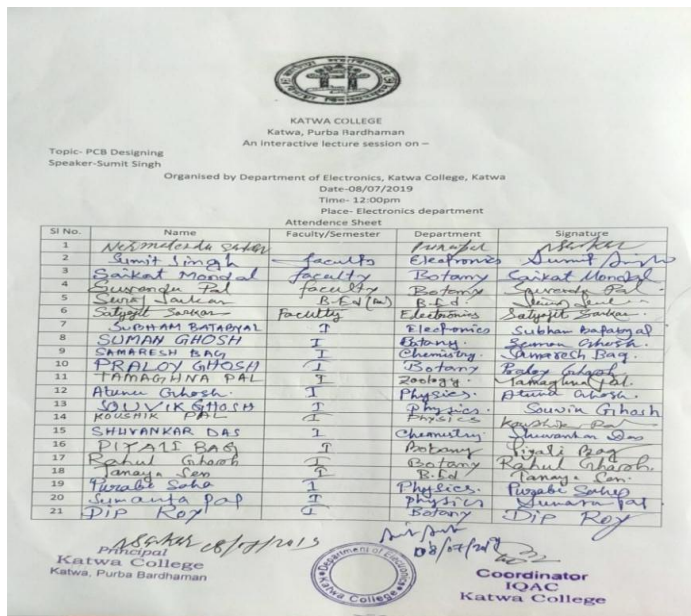 KATWA COLLEGE
Katwa, Purba Bardhaman
An interactive lecture session on –
Topic- PCB Designing
Speaker-Sumit Singh
Organised by Department of Electronics, Katwa College, Katwa
Date-08/07/2019
Time- 12:00pm
Place- Electronics department
Attendence Sheet
Sl No. Name Faculty/Semester Department Signature
1 Principal
2 Sumit Singh faculty Electronics Sumit Singh
3 Saikat Mondal faculty Botany Saikat Mondal
4 Suvendu Pal faculty Botany Suvendu Pal.
5 Sarkar B.Ed B.Ed
6 Satyajit Sarkar Faculty Electronics Satyajit Sarkar.
7 SUBHAM BATABYAL I Electronics Subham Batabyal
8 SUMAN GHOSH I Botany. Suman Ghosh.
9 SAMARESH BAG I Chemistry. Samaresh Bag.
10 PRALOY GHOSH I Botany Praloy Ghosh
11 TAMAGHNA PAL I Zoology. Tamaghna Pal.
12 Atanu Ghosh. I Physics. Atanu Ghosh.
13 SOUVIK GHOSH I Physics. Souvik Ghosh
14 KOUSHIK PAL I Physics Koushik Pal
15 SHUVANKAR DAS I Chemistry. Shuvankar Das
16 PIYALI BAG I Botany Piyali Bag
17 Rahul Ghosh I Botany Rahul Ghosh.
18 Tanaya Sen I B.Ed Tanaya Sen.
19 Purabi Saha I Physics. Purabi Saha
20 Sumanta Pal I Physics
21 Dip Roy I Botany Dip Roy
08/07/2019
08/07/2019
Principal
Katwa College
Katwa, Purba Bardhaman
Department of Electronics
Katwa College
Coordinator
IQAC
Katwa College